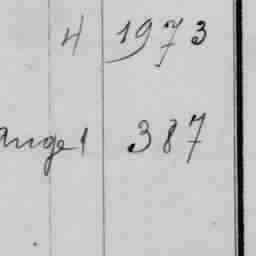 4 1973
ange 1 387